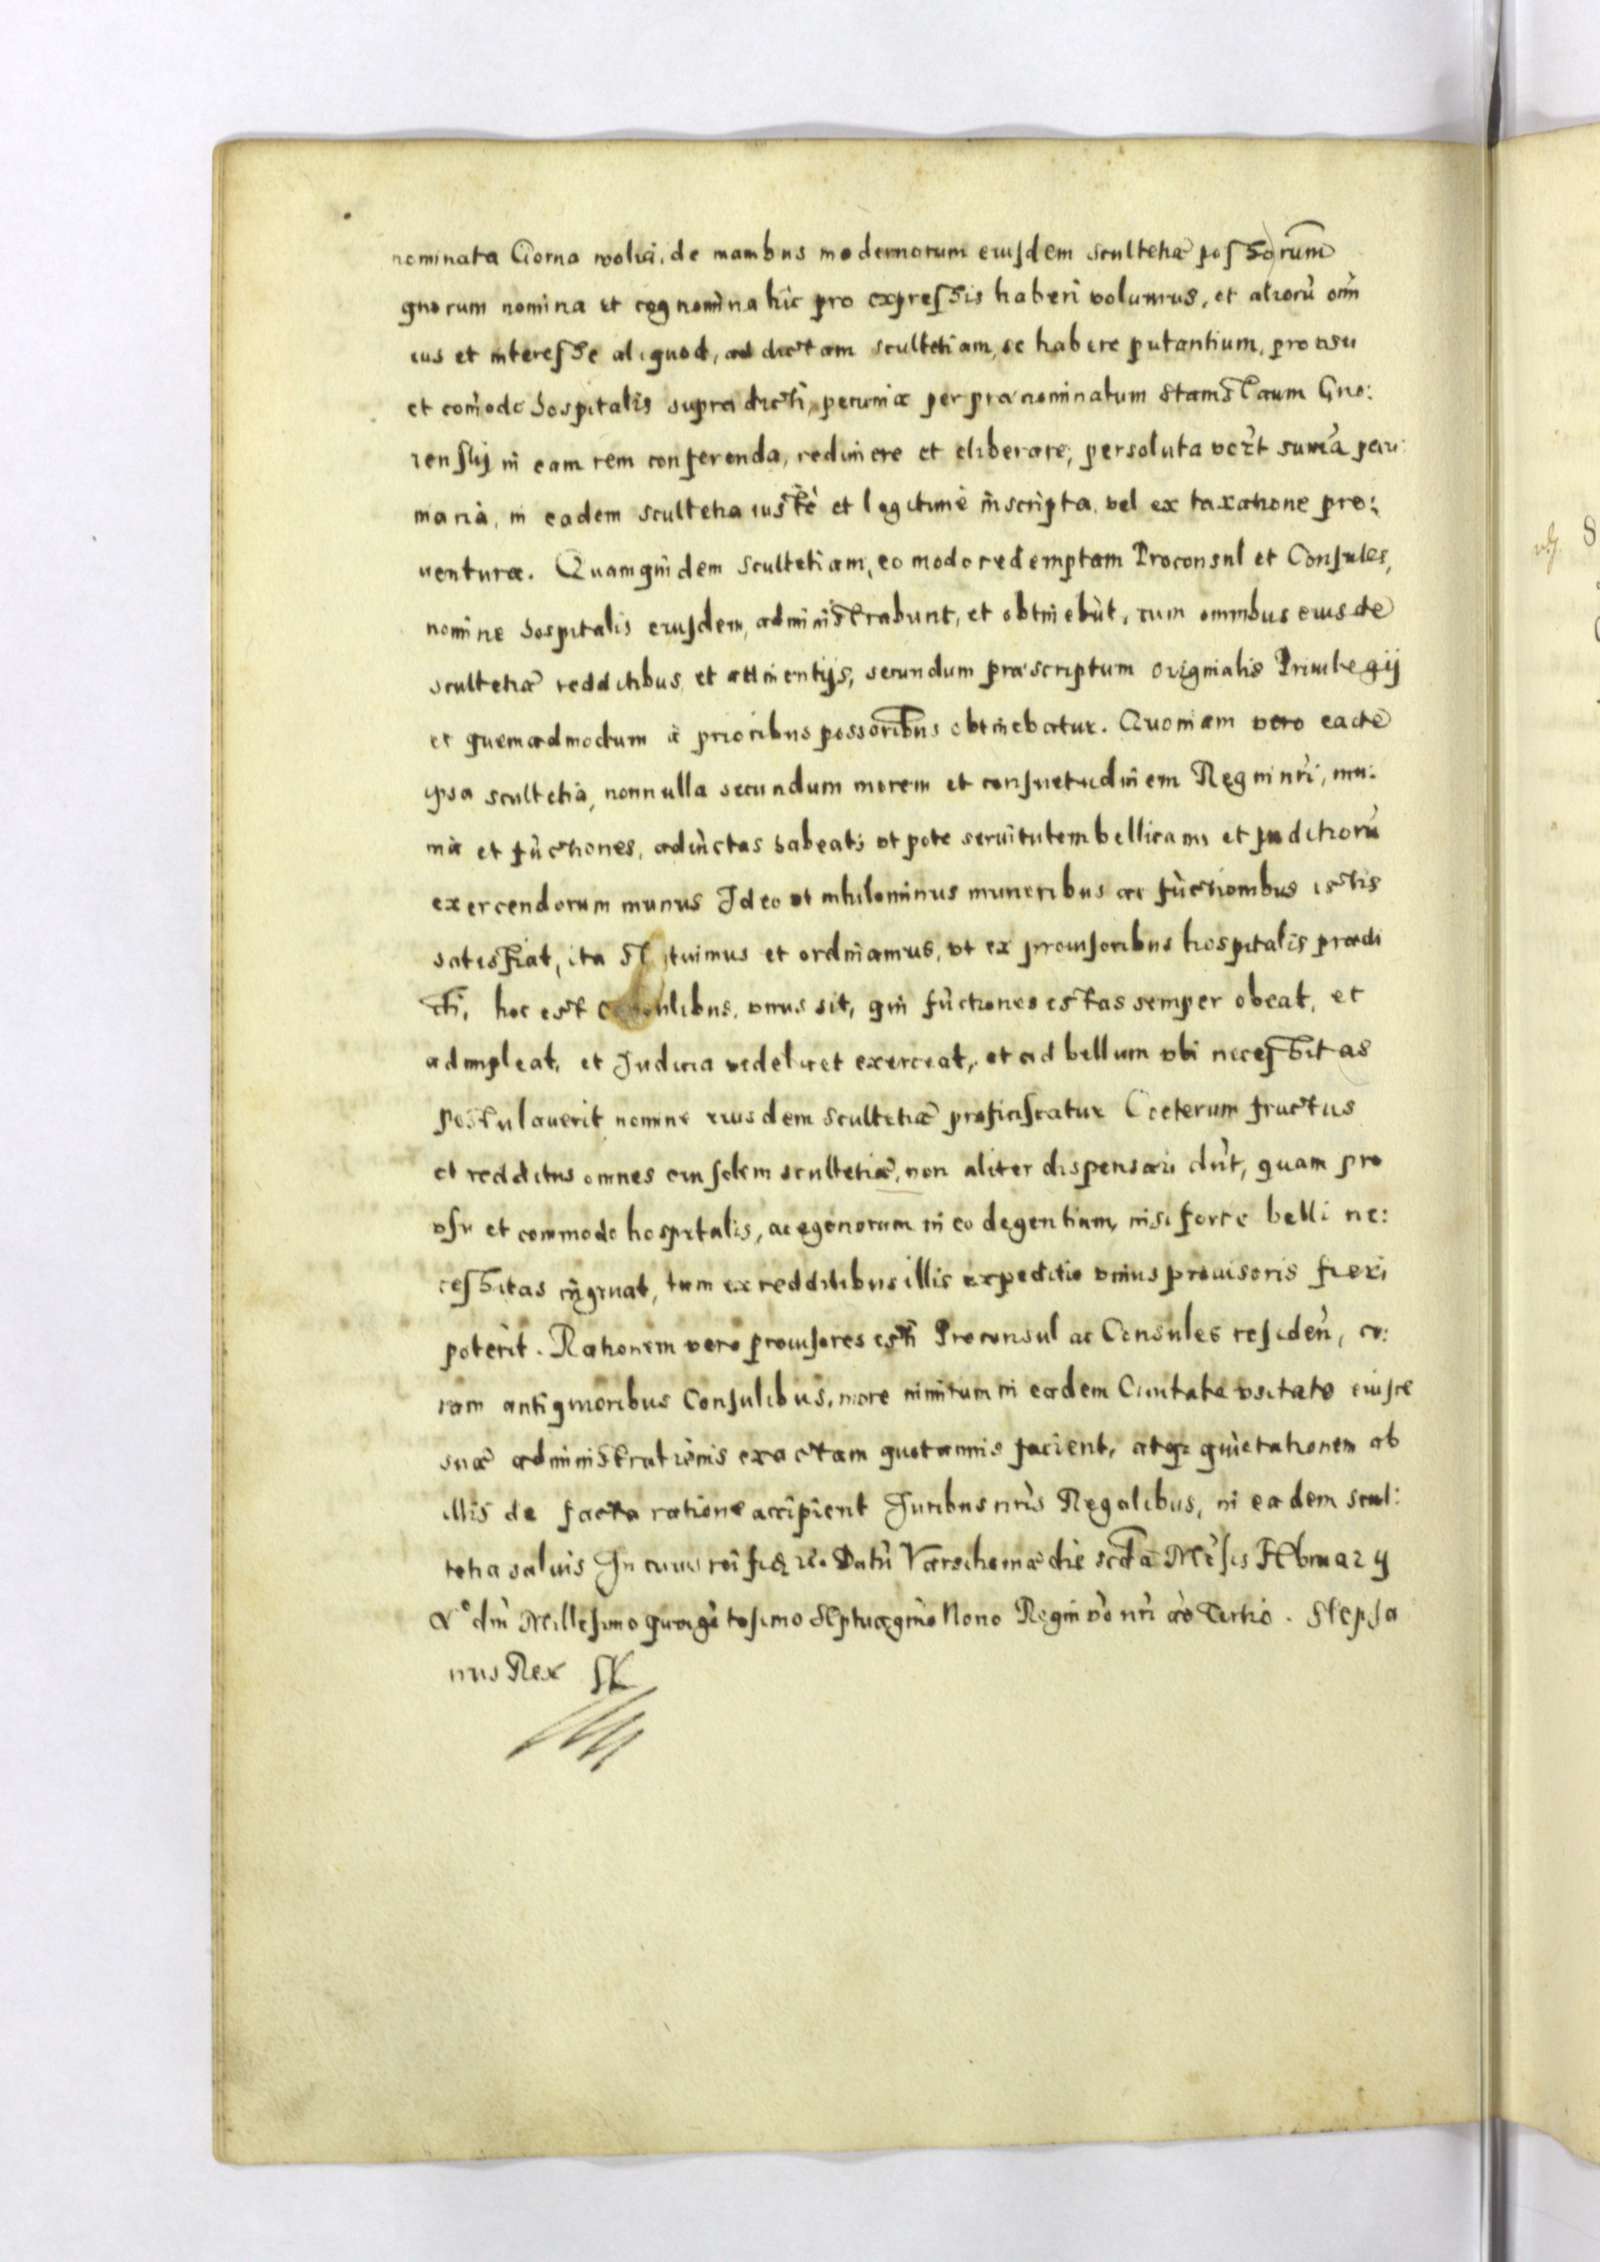 nominata Czorna wolia, de manibus modernorum eiusdem scultetiæ possorum
quorum nomina et cognomina hic pro expressis haberi volumus, et aliorū om̄
ius et interesse aliquod, ad dictam scultetiam, se habere putantium, pro usu
et com̄odo hospitalis supra dicti, pecuniæ per prænominatum Stanislaum Gno:
ienskij in eam rem conferenda, redimere et eliberare, persoluta vert sum̄a pecu:
niaria, in eadem scultetia iustè et legitimè inscripta, vel ex taxatione pro:
uenturæ. Quamquidem Scultetiam, eo modo redemptam Proconsul et Consules,
nomine hospitalis eiusdem, administrabunt, et obtinebūt, cum omnibus eiusde
scultetiæ redditibus et attinentijs, secundum præscriptum originalis Priuilegij
et quemadmodum à prioribus possoribus obtinebatur. Quoniam vero eade
ipsa scultetia, nonnulla secundum morem et consuetudinem Regni nr̄i, mu:
nia et fūctiones, adiūctas habeat, vt pote seruitutem bellicam, et Juditiorū
exercendorum munus Ideo vt nihilominus muneribus ac fūctionibus istis
satisfiat, ita statuimus et ordinamus, vt ex prouisoribus hospitalis prædi
cti, hoc est Consulibus, vnus sit, qui fūctiones istas semper obeat, et
adimpleat, et Judicia videlicet exerceat, et ad bellum vbi necessitas
postulauerit nomine eiusdem scultetiæ proficiscatur Cæterum fructus
et redditus omnes eiusdem scultetiæ, non aliter dispensari dn̄t, quam pro
vsu et commodo hospitalis, ac egenorum in eo degentium, nisi forte belli ne:
cessitas ingruat, tum ex redditibus illis expeditio vnius prouisoris fieri
poterit. Rationem vero prouisores isti Proconsul ac Consules residen̄, co:
ram antiquioribus Consulibus, more nimirum in eadem Ciuitate vsitato eiusce
suæ administrationis exactam quotannis facient, atq3 quietationem ab
illis de facta ratione accipient Juribus nr̄is Regalibus, in eadem scul:
tetia saluis In cuius rei fid. Datū Varschouiæ die scda Mēsis Februarij
Ao dn̄i Millesimo quingētesimo Septuagmo Nono Regni vō nr̄i aō Tertio. Stepha
nus Rex